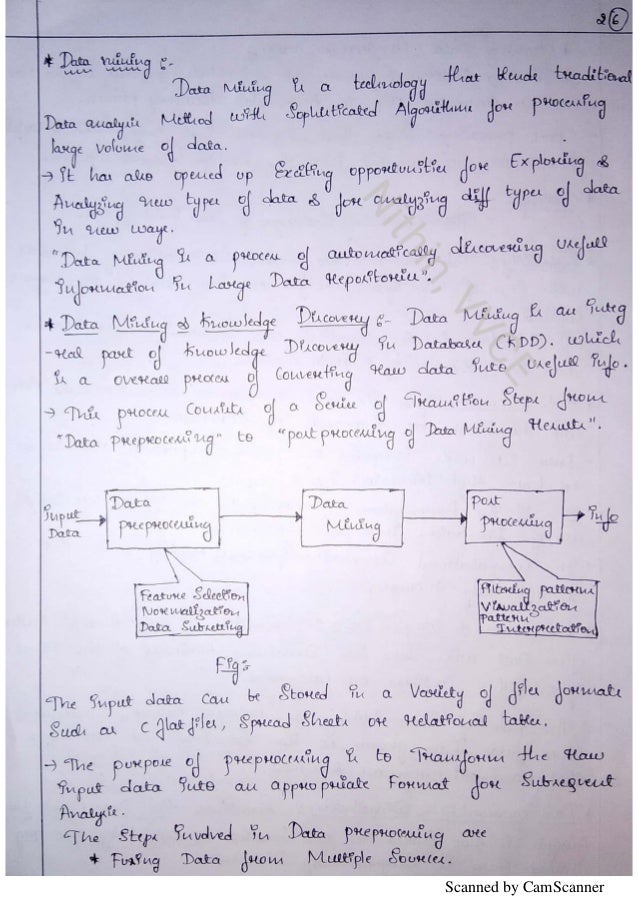 2 6
* Data mining :-
Data Mining is a technology that blends traditional
Data analysis Method with Sophisticated Algorithms for processing
large volume of data.
→ It has also opened up Exciting opportunities for Exploring &
Analyzing new types of data & for analyzing diff types of data
in new ways.
"Data Mining is a process of automatically discovering usefull
Information in Large Data Repositories".
* Data Mining & Knowledge Discovery :- Data Mining is an integ
-ral part of Knowledge Discovery in Databases (KDD). which
is a overall process of Converting Raw data into usefull info.
→ This process Consists of a Series of Transition Steps from
"Data preprocessing" to "post processing of Data Mining Results".
Input
Data
Data
preprocessing
Data
Mining
Post
processing
Info
Feature Selection
Normalization
Data Subsetting
Filtering patterns
Visualization
pattern
Interpretation
Fig:-
The Input data Can be Stored in a Variety of files formats
Such as ( flat files, Spread Sheets or Relational tables.
→ The purpose of preprocessing is to Transform the Raw
input data into an appropriate Format for Subsequent
Analysis.
The Steps Involved in Data preprocessing are
* Fusing Data from Multiple Sources.
Nithin, VVCE
Scanned by CamScanner